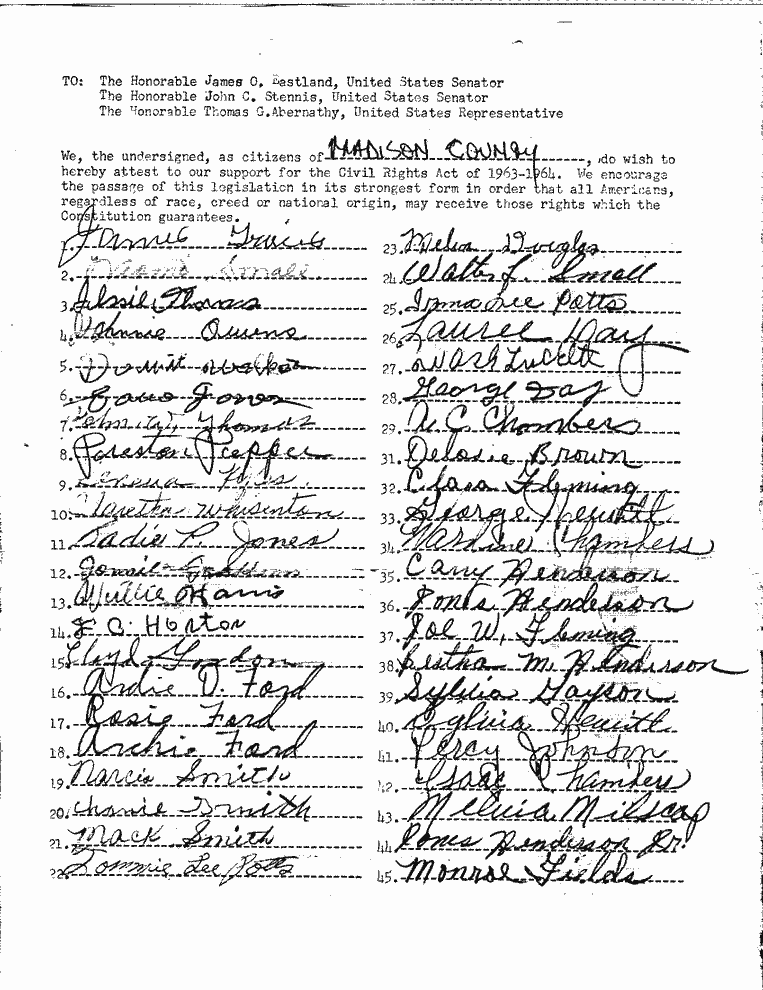 TO: The Honorable James O. Eastland, United States Senator
The Honorable John C. Stennis, United States Senator
The Honorable Thomas G.Abernathy, United States Representative
We, the undersigned, as citizens of MADISON COUNTY, do wish to
hereby attest to our support for the Civil Rights Act of 1963-1964. We encourage
the passage of this legislation in its strongest form in order that all Americans,
regardless of race, creed or national origin, may receive those rights which the
Constitution guarantees.
1.
2. Small
3. Thomas
4. Johnnie Owens
5.
6. Jones
7. John Thomas
8. Preston Pepper
9.
10. Whisenton
11. Sadie P. Jones
12.
13. Willie Harris
14. J C. Horton
15. Lloyd Gordon
16. Ardie D. Ford
17. Rosie Ford
18. Archie Ford
19. Narcis Smith
20. Smith
21. Mack Smith
22. Tommie Lee Potts
23. Douglas
24. Walter J. Small
25. Irma Lee Potts
26. Day
27. Luckett
28. George Day
29. A. C. Chambers
31. Delosie Brown
32. Clara Fleming
33. George Hewitt
34. Chambers
35. Carry Henderson
36. Henderson
37. Joe W. Fleming
38. Bertha M. Henderson
39. Sylvia Grayson
40. Sylvia Hewitt
41. Percy Johnson
42. Isaac Chambers
43. Melvia
44. Henderson Sr.
45. Monroe Fields